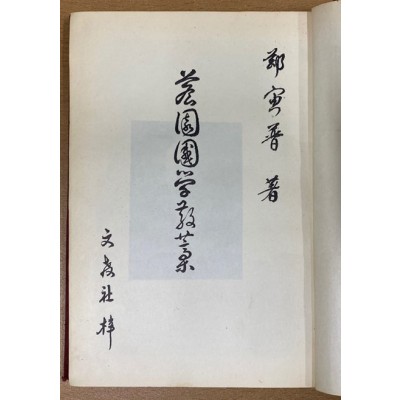 鄭寅普 著
薝園國學散藁
文敎社 梓